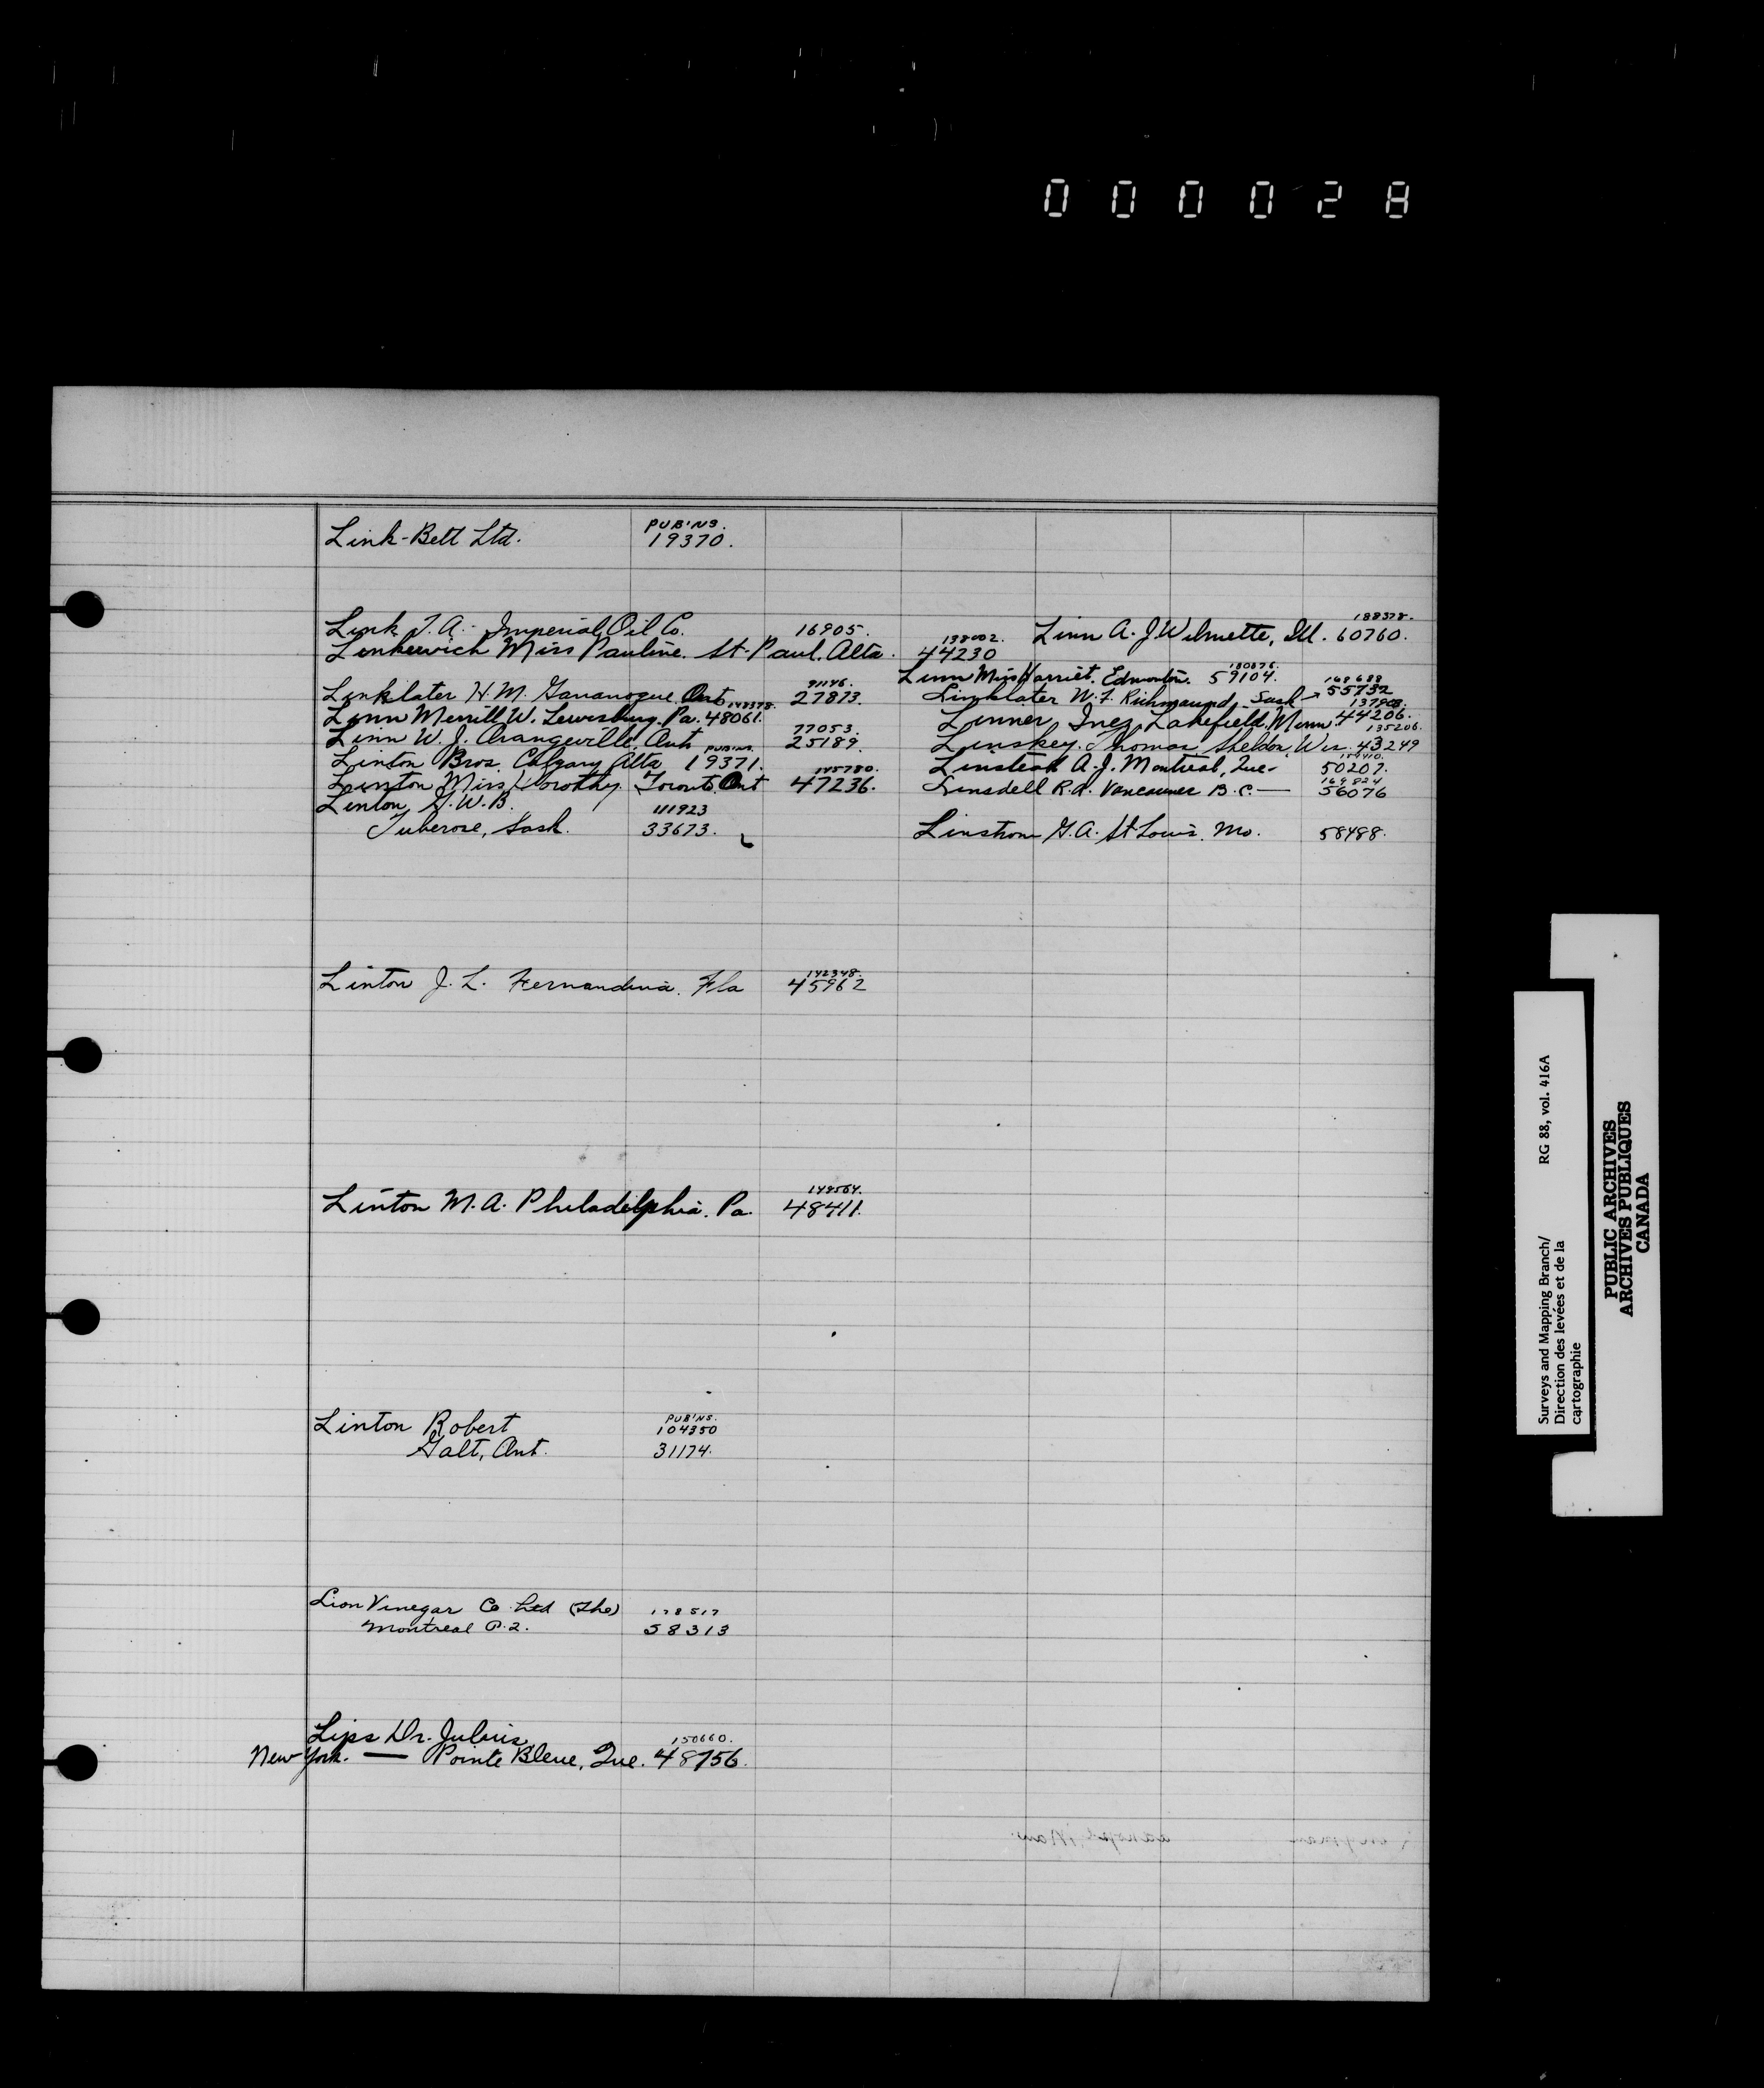 000028
Link-Belt Ltd. PUB'NS. 19370.
Link T.A. - Imperial Oil Co. 16905.
Linkewich Miss Pauline. St. Paul. Alta. 138002. 44230
Linklater H.M. Gananoque Ont 91146. 27873.
Linn Merrill W. Lewisburg. Pa. 148378. 48061.
Linn W.J. Orangeville, Ont 77053. 25189.
Linton Bros. Calgary Alta PUB'NS. 19371.
Linton Miss Dorothy. Toronto Ont 145780. 47236.
Linton, G.W.B. 111923
Tuberose, Sask. 33673.
Linn A.J. Wilmette, Ill. 188378. 60760.
Linn Miss Harriet. Edmonton. 180876. 59104.
Linklater W.F. Richmound, Sask 168688 55732
Linner, Inez, Lakefield, Minn. 137908. 44206.
Linskey. Thomas Sheldon, Wis. 135206. 43249
Linstead A.J. Montreal, Que. 50207.
Linsdell R.A. Vancouver B.C. — 169824 56076
Linstrom G.A. St Louis. Mo. 58488.
Linton J.L. Fernandina. Fla 142348. 45962
Linton M.A. Philadelphia. Pa. 148564. 48411.
Linton Robert PUB'NS. 104350
Galt, Ont. 31174.
Lion Vinegar Co Ltd (The) 178517
Montreal P.Q. 58313
Lips Dr. Julius, 150660.
New York. — Pointe Bleue, Que. 48756.
Surveys and Mapping Branch/ RG 88, vol. 416A
Direction des levées et de la
cartographie
PUBLIC ARCHIVES
ARCHIVES PUBLIQUES
CANADA